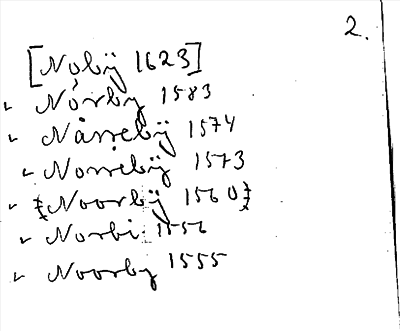 2.
[Nọbÿ 1623]
Nórby 1583
Nårrebÿ 1574
Norrebÿ 1573
{Noorbÿ 1560}
Norbi 1556
Noorby 1555